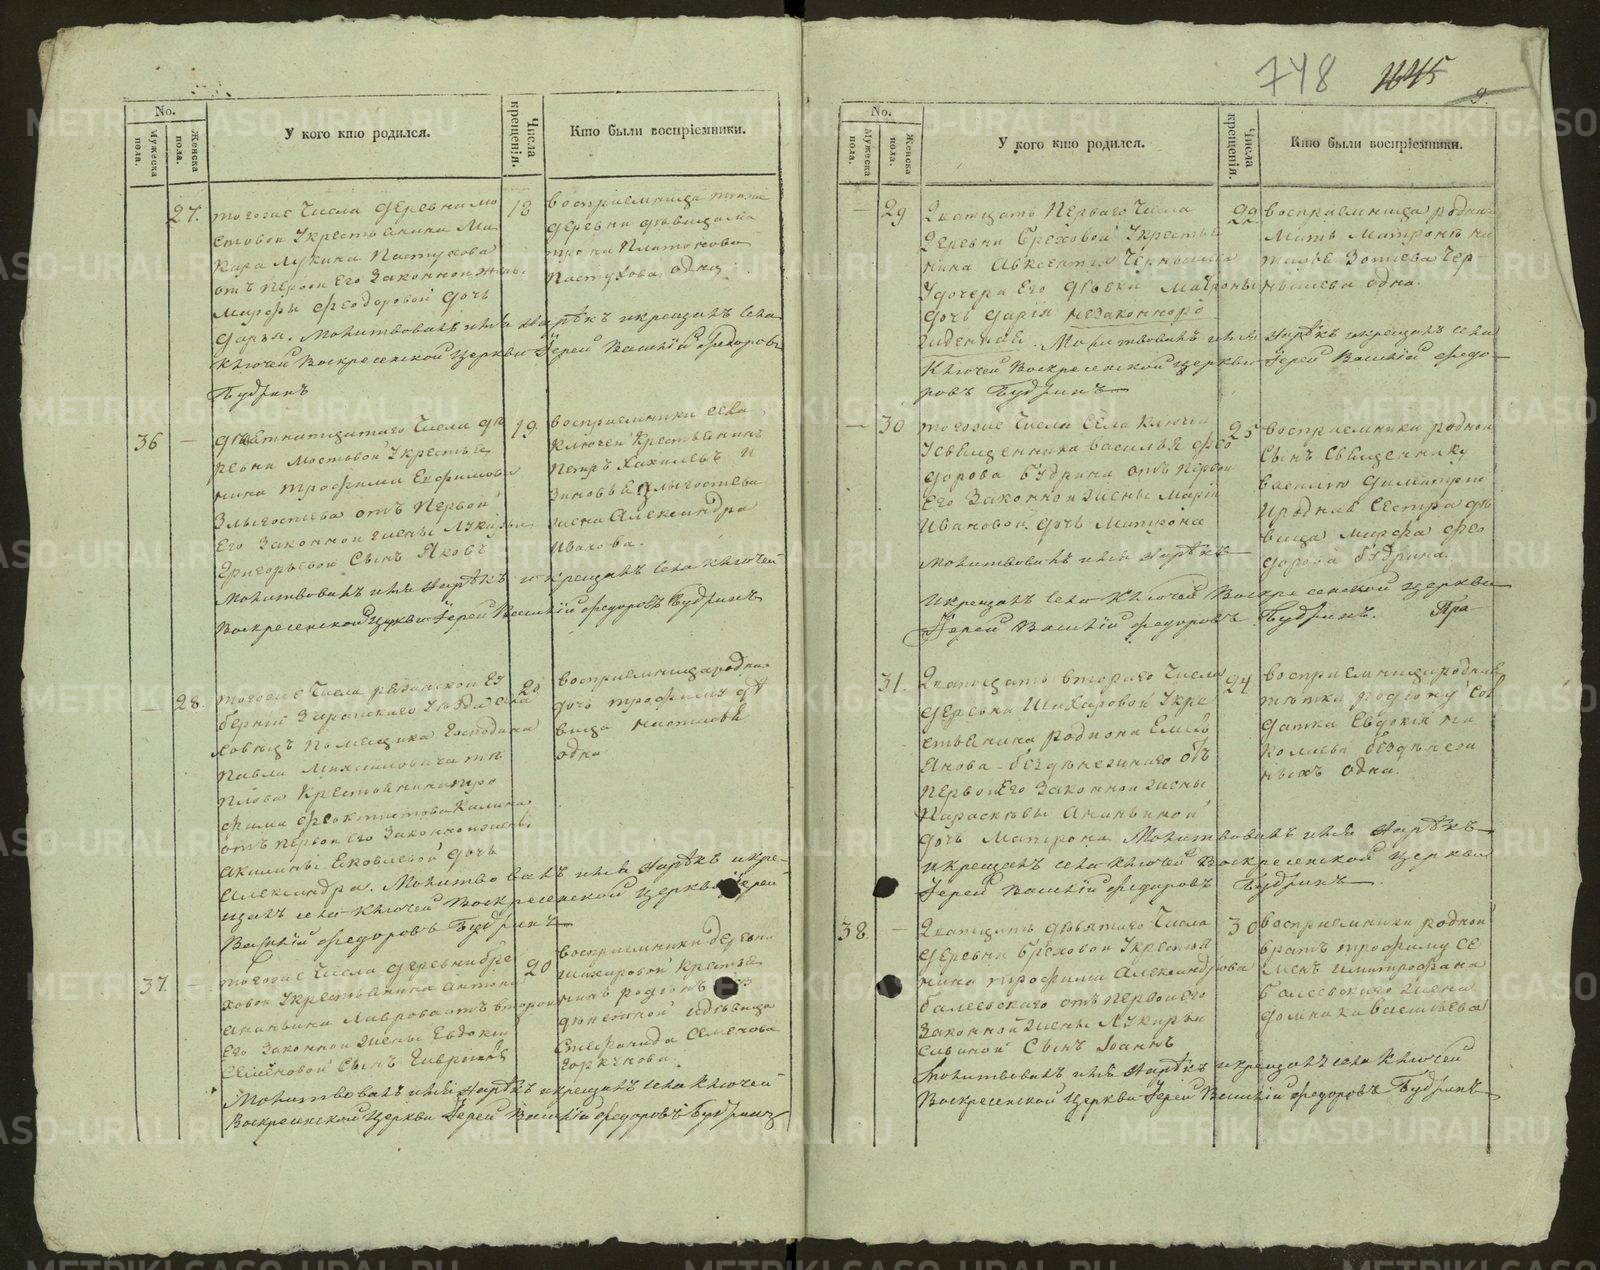 748 1645
9.
No.
Мужеска пола.
Женска пола.
У кого кто родился.
Числа крещенія.
Кто были воспріемники.
27.
тогоже числа деревни Мо
стовой укрестьянина Ма
кара Лукина Пастухова
отъ первой его законной жены
Марфы Феодоровой дочь
Дарья. Молитвовалъ имя нарѣкъ и крещалъ села
Ключей Воскресенской церкви Іерей Василій Федоровъ
Будринъ
18
восприемница тояже
деревни девица Ма
трона Платонова
Пастухова одна.
36 —
девятнатцатаго числа де
ревни Мостовой укрестья
нина Трофима Ефимова
Злыгостева отъ первой
его законной жены Лукерьи
Григорьевой сынъ Яковъ
Молитвовалъ имя нарѣкъ и крещалъ села Ключей
Воскресенской церкви Іерей Василій Федоровъ Будринъ
19.
восприемники села
Ключей крестьянинъ
Петръ и
Злыгостева
жена Александра
Иванова.
— 28.
тогоже числа рязанской гу
берніи Зарайскаго уезда села
помещика господина
Павла Михайловича
крестьянина Тро
фима Феоктистова Калина
отъ первой его законной жены
Акилины Яковлевой дочь
Александра. Молитвовалъ имя нарѣкъ и кре-
щалъ села Ключей Воскресенской церкви Іерей
Василій Федоровъ Будринъ
20
восприемница родная
дочь Трофима де
вица
одна
37. —
тогоже числа деревни Бре
ховой укрестьянина Антона
Ананьина Лаврова отъ второй
его законной жены Евдокіи
Семеновой сынъ Гаврилъ
Молитвовалъ имя нарѣкъ и крещалъ села Ключей
Воскресенской церкви Іерей Василій Федоровъ Будринъ
20
восприемники деревни
Шихаровой крестья
нинъ Родіонъ
и девица
Степанида Семенова
Горкунова.
No.
Мужеска пола.
Женска пола.
У кого кто родился.
Числа крещенія.
Кто были воспріемники.
— 29
Дватцать перваго числа
деревни Бреховой укрестья
нина Авксентія Чернышева
у дочери его девки Матроны
дочь Дарія незаконно
. Молитвовалъ имя нарѣкъ и крещалъ села
Ключей Воскресенской церкви Іерей Василій Федо-
ровъ Будринъ
22
восприемница родная
мать Матроны На
талья Зотеева Чер-
нышева одна.
— 30
тогоже числа села Ключей
у священника Василья Фео
дорова Будрина отъ первой
его законной жены Маріи
Ивановой дочь Матрона
Молитвовалъ имя нарѣкъ
и крещалъ села Ключей Воскресенской церкви
Іерей Василій Федоровъ Будринъ. Пра-
25
восприемники родной
сынъ священнику
Василью Димитрій
и родная сестра де
вица Марфа Фео
дорова Будрина.
31.
Дватцать втораго числа
деревни Шихаровой укре
стьянина Родиона Емель
янова отъ
первой его законной жены
Параскевы Ананьиной
дочь Матрона Молитвовалъ имя нарѣкъ
и крещалъ села Ключей Воскресенской церкви
Іерей Василій Федоровъ Будринъ
24
восприемница родная
тетка Родіону сол
датка Евдокія Ни
колаева
одна.
38 —
Дватцать девятаго числа
деревни Бреховой укрестья
нина Трофима Александрова
Балевскаго отъ первой его
законной жены Лукерьи
Савиной сынъ Іоаннъ
Молитвовалъ имя нарѣкъ и крещалъ села Ключей
Воскресенской церкви Іерей Василій Федоровъ Будринъ
30
восприемники родной
братъ Трофиму Се
менъ и Митрофана
Балевскаго жена
Домника Васильева